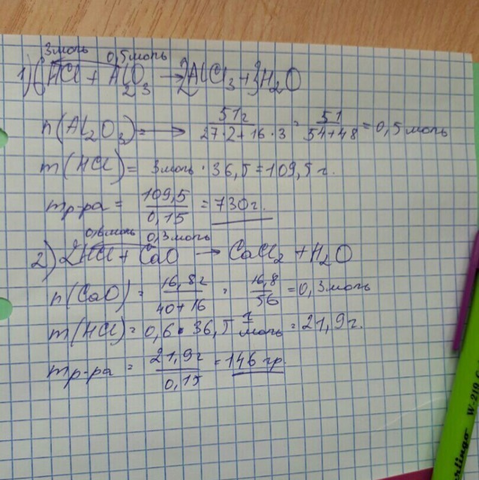 3 моль 0,5 моль
1) 6HCl + Al2O3 → 2AlCl3 + 3H2O
n(Al2O3) = → 51г / 27·2+16·3 = 51 / 54+48 = 0,5 моль
m(HCl) = 3 моль · 36,5 = 109,5 г.
mр-ра = 109,5 / 0,15 = 730 г.
0,6 моль 0,3 моль
2) 2HCl + CaO → CaCl2 + H2O
n(CaO) = 16,8г / 40+16 = 16,8 / 56 = 0,3 моль
m(HCl) = 0,6 · 36,5 г/моль = 21,9 г.
mр-ра = 21,9г / 0,15 = 146 гр